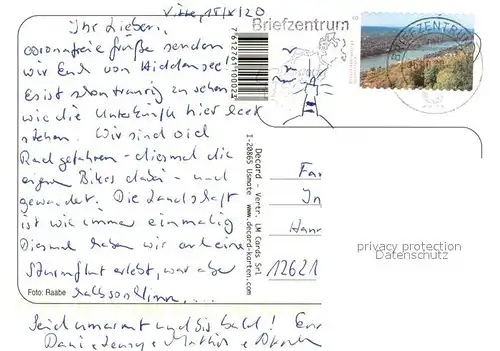 Vitte, 15/X/20
Ihr Lieben,
coronafreie Grüße senden
wir Euch von Hiddensee!
Es ist schon traurig zu sehen
wie die Unterkünfte hier leer
stehen. Wir sind viel
Rad gefahren - diesmal die
eigenen Bikes dabei - und
gewandert. Die Landschaft
ist wie immer einmalig
Diesmal haben wir auch eine
Sturmflut erlebt, war aber
halb so schlimm, ...
Foto: Raabe
Seid umarmt und bis bald! Eure
Briefzentrum
BRIEFZENTRUM
7612761100021
Decard - Vertr. LM Cards Srl
I-20865 Usmate www.decard-karten.com
Fa
In
Hann
12621
privacy protection
Datenschutz